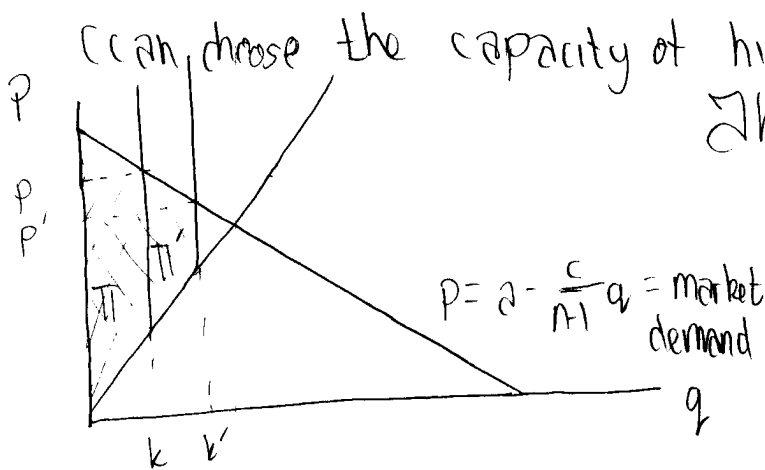 Ccan choose the capacity of
P
P
P'
π
π'
p = a - c/n-1 q = market
demand
q
k
k'